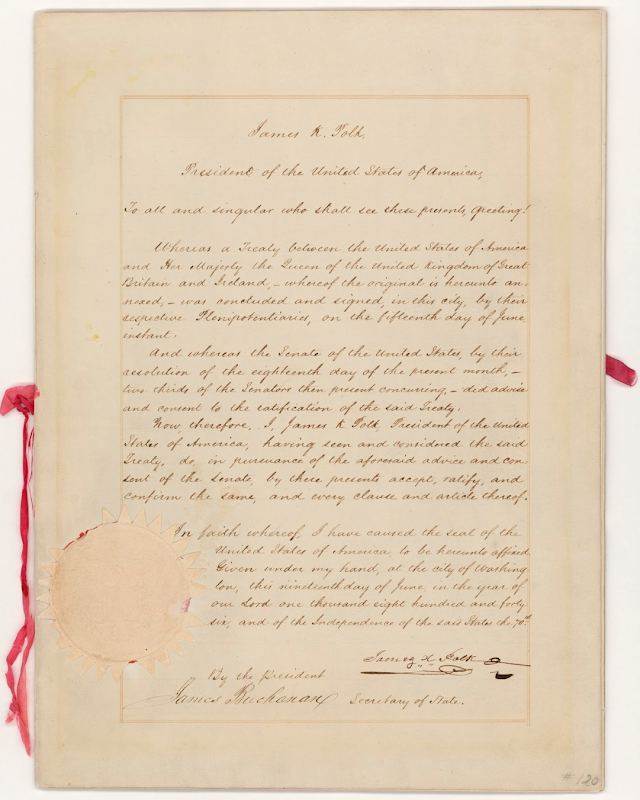 James K. Polk,
President of the United States of America,
To all and singular who shall see these presents, Greeting!
Whereas a Treaty between the United States of America
and Her Majesty the Queen of the United Kingdom of Great
Britain and Ireland, - whereof the original is hereunto an-
nexed, - was concluded and signed, in this city, by their
respective Plenipotentiaries, on the fifteenth day of June,
instant.
And whereas the Senate of the United States, by their
resolution of the eighteenth day of the present month, -
two thirds of the Senators then present concurring, - did advise
and consent to the ratification of the said Treaty.
Now, therefore, I, James K. Polk, President of the United
States of America, having seen and considered the said
Treaty, do, in pursuance of the aforesaid advice and con-
sent of the Senate, by these presents accept, ratify, and
confirm the same, and every clause and article thereof.
In faith whereof, I have caused the seal of the
United States of America, to be hereunto affixed.
Given under my hand, at the city of Washing
ton, this nineteenth day of June, in the year of
our Lord one thousand eight hundred and forty-
six, and of the Independence of the said States the 70th.
James K. Polk
By the President
James Buchanan Secretary of State.
# 120